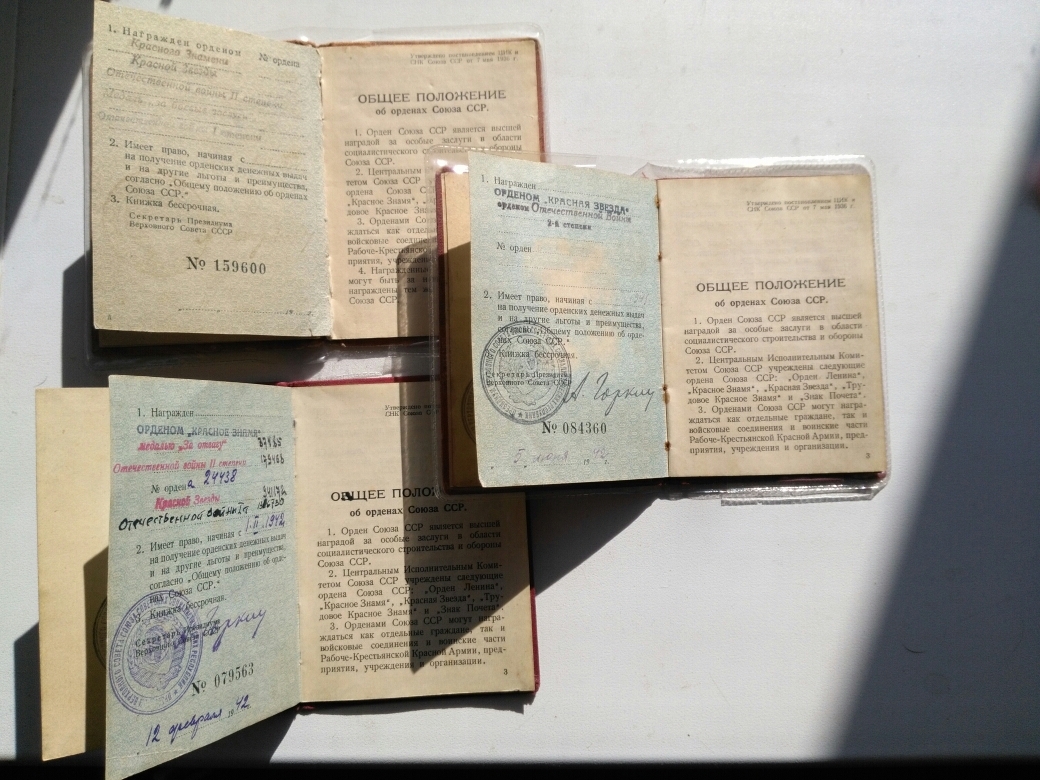 1. Награжден орденом
Красного Знамени
№ ордена
Красной Звезды
Отечественной войны II степени
Медаль „за боевые заслуги
I степени
2. Имеет право, начиная с
на получение орденских денежных выдач
и на другие льготы и преимущества,
согласно „Общему положению об орденах
Союза ССР.“
3. Книжка бессрочная.
Секретарь Президиума
Верховного Совета СССР
№ 159600
Утверждено постановлением ЦИК и
СНК Союза ССР от 7 мая 1936 г.
ОБЩЕЕ ПОЛОЖЕНИЕ
об орденах Союза ССР.
1. Орден Союза ССР является высшей
наградой за особые заслуги в области
социалистического обороны
Союза ССР.
2. Центральным
тетом Союза ССР
ордена Союза
„Красное Знамя“,
довое Красное Знамя“
3. Орденами Союза
ждаться как отдельные
войсковые соединения
Рабоче-Крестьянской
приятия, учреждения
4. Награжденные
могут быть
награждены
Союза ССР.
1. Награжден
ОРДЕНОМ „КРАСНАЯ ЗВЕЗДА“
орденом Отечественной Войны
2-й степени
№ орден
2. Имеет право, начиная с
на получение орденских денежных выдач
и на другие льготы и преимущества,
согласно „Общему положению об орде-
нах Союза ССР.“
Книжка бессрочная.
Секретарь Президиума
Верховного Совета СССР
А. Горкин
№ 084360
5 июня 1942
Утверждено постановлением ЦИК и
СНК Союза ССР от 7 мая 1936 г.
ОБЩЕЕ ПОЛОЖЕНИЕ
об орденах Союза ССР.
1. Орден Союза ССР является высшей
наградой за особые заслуги в области
социалистического строительства и обороны
Союза ССР.
2. Центральным Исполнительным Коми-
тетом Союза ССР учреждены следующие
ордена Союза ССР: „Орден Ленина“,
„Красное Знамя“, „Красная Звезда“, „Тру-
довое Красное Знамя“ и „Знак Почета“.
3. Орденами Союза ССР могут награ-
ждаться как отдельные граждане, так и
войсковые соединения и воинские части
Рабоче-Крестьянской Красной Армии, пред-
приятия, учреждения и организации.
3
1. Награжден
ОРДЕНОМ „КРАСНОЕ ЗНАМЯ“
медалью „За отвагу“
Отечественной войны II степени
№ ордена 24438
Красной Звезды
Отечественной войны
2. Имеет право, начиная с 1.II.1942
на получение орденских денежных выдач
и на другие льготы и преимущества,
согласно „Общему положению об орде-
нах Союза ССР.“
Книжка бессрочная.
Секретарь Президиума
Верховного Совета СССР
Горкин
№ 079563
12 февраля 1942
Утверждено
СНК Союза ССР
ОБЩЕЕ ПОЛОЖЕНИЕ
об орденах Союза ССР.
1. Орден Союза ССР является высшей
наградой за особые заслуги в области
социалистического строительства и обороны
Союза ССР.
2. Центральным Исполнительным Коми-
тетом Союза ССР учреждены следующие
ордена Союза ССР: „Орден Ленина“,
„Красное Знамя“, „Красная Звезда“, „Тру-
довое Красное Знамя“ и „Знак Почета“.
3. Орденами Союза ССР могут награ-
ждаться как отдельные граждане, так и
войсковые соединения и воинские части
Рабоче-Крестьянской Красной Армии, пред-
приятия, учреждения и организации.
3